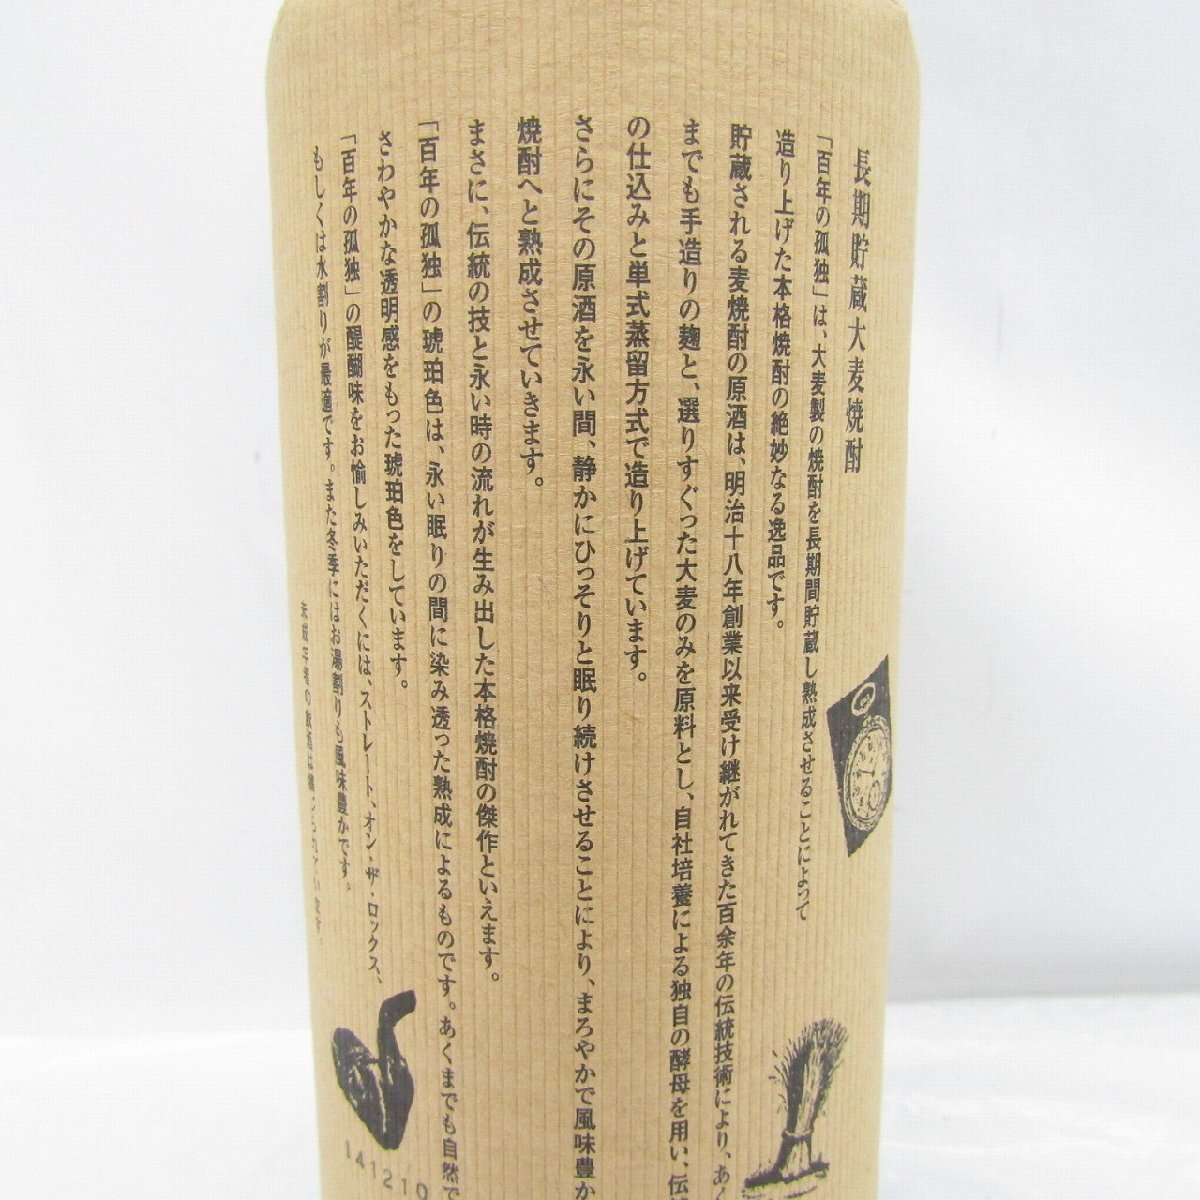 長期貯蔵大麦焼酎
「百年の孤独」は、大麦製の焼酎を長期間貯蔵し熟成させることによって
造り上げた本格焼酎の絶妙なる逸品です。
貯蔵される麦焼酎の原酒は、明治十八年創業以来受け継がれてきた百余年の伝統技術により、あく
までも手造りの麹と、選りすぐった大麦のみを原料とし、自社培養による独自の酵母を用い、伝
の仕込みと単式蒸留方式で造り上げています。
さらにその原酒を永い間、静かにひっそりと眠り続けさせることにより、まろやかで風味豊か
焼酎へと熟成させていきます。
まさに、伝統の技と永い時の流れが生み出した本格焼酎の傑作といえます。
「百年の孤独」の琥珀色は、永い眠りの間に染み透った熟成によるものです。あくまでも自然で
さわやかな透明感をもった琥珀色をしています。
「百年の孤独」の醍醐味をお愉しみいただくには、ストレート、オン・ザ・ロックス、
もしくは水割りが最適です。また冬季にはお湯割りも風味豊かです。
未成年者の飲酒は禁じられています。
141210